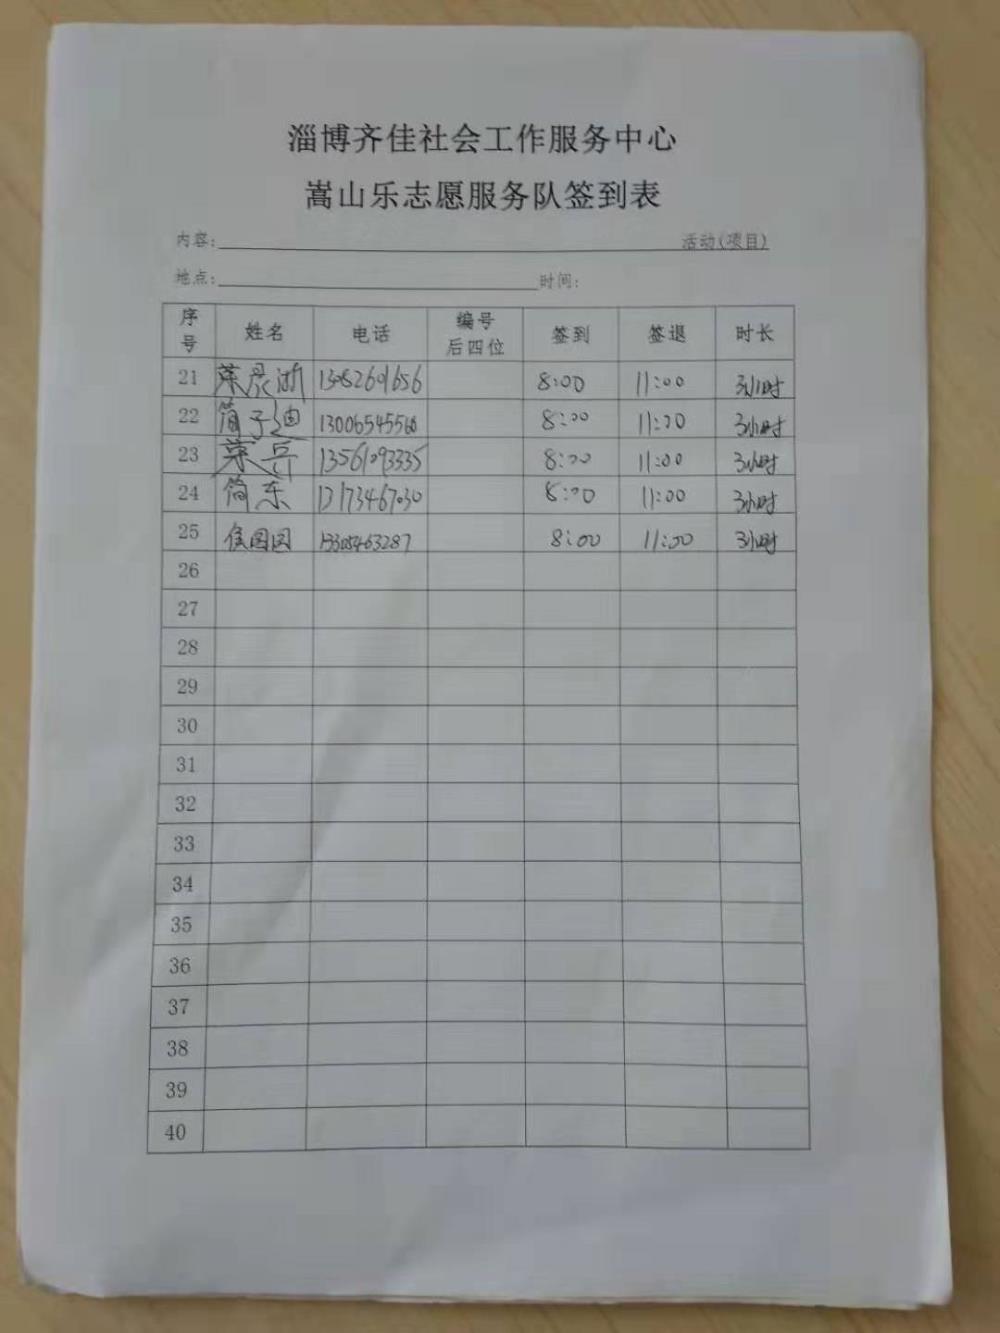 淄博齐佳社会工作服务中心
嵩山乐志愿服务队签到表
内容: 活动(项目)
地点: 时间:
序号 姓名 电话 编号后四位 签到 签退 时长
21 13082601656 8:00 11:00 3小时
22 简子迪 13006545560 8:00 11:00 3小时
23 13561093335 8:00 11:00 3小时
24 简东 13173467030 8:00 11:00 3小时
25 8:00 11:00 3小时
26
27
28
29
30
31
32
33
34
35
36
37
38
39
40